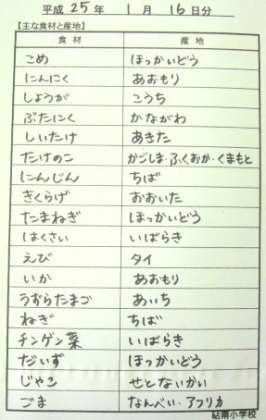 平成25年 1月 16日分
【主な食材と産地】
食材 産地
こめ ほっかいどう
にんにく あおもり
しょうが こうち
ぶたにく かながわ
しいたけ あきた
たけのこ かごしま・ふくおか・くまもと
にんじん ちば
きくらげ おおいた
たまねぎ ほっかいどう
はくさい いばらき
えび タイ
いか あおもり
うずらたまご あいち
ねぎ ちば
チンゲン菜 いばらき
だいず ほっかいどう
じゃこ せとないかい
ごま なんべい・アフリカ
小学校